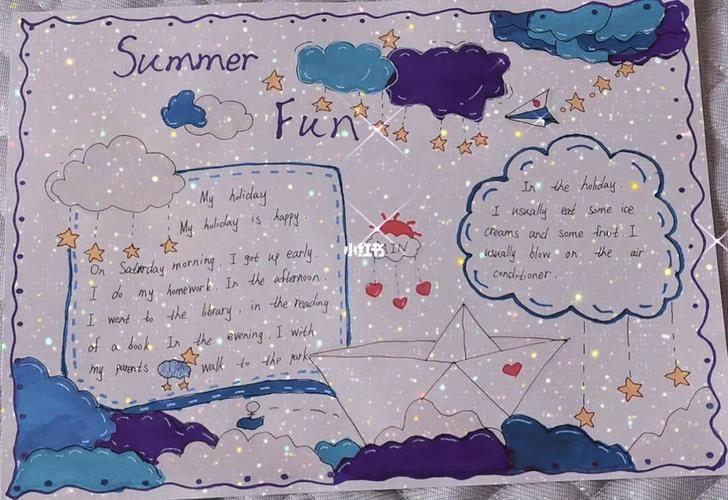 Summer
Fun
My holiday
My holiday is happy.
On Saturday morning, I got up early.
I do my homework. In the afternoon,
I went to the library, in the reading
of a book In the evening, I with
my parents walk to the park.
小红书
IN
In the holiday.
I usually eat some ice
creams and some fruit I
usually blow on the air
conditioner.